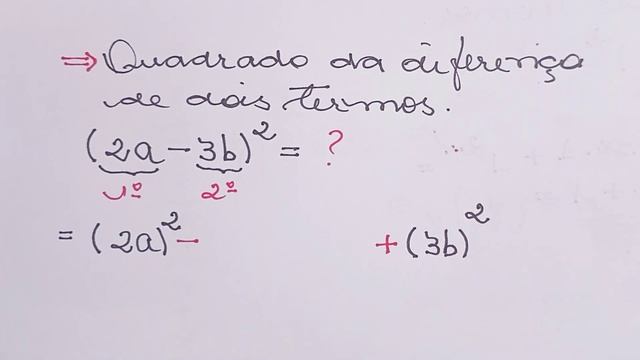 ⇒ Quadrado da diferença
de dois termos.
(2a - 3b)² = ?
1º 2º
= (2a)² - + (3b)²